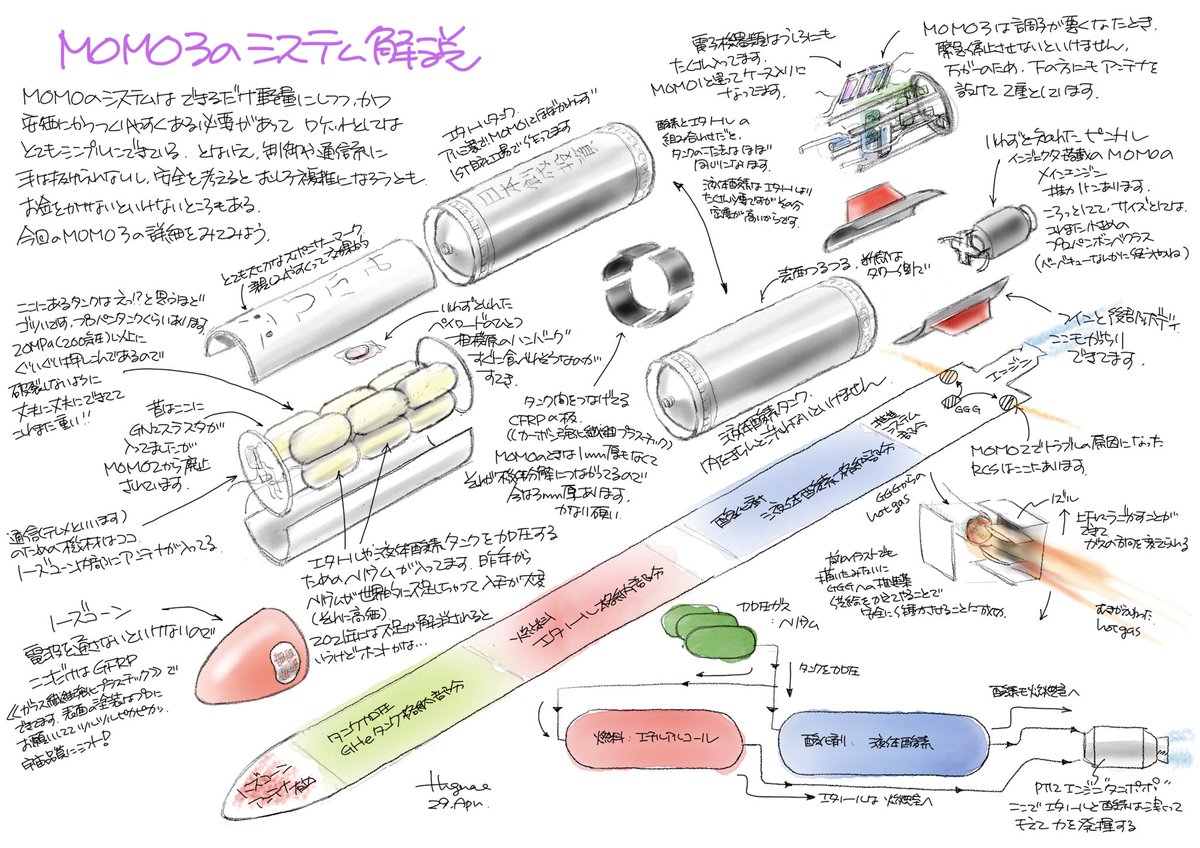 MOMO3のシステム解説
MOMOのシステムはできるだけ軽量にしつつ、かつ
安価にかつつくりやすくある必要があって ロケットとしては
とてもシンプルにできている. とはいえ, 制御や通信系に
手は抜けられないし, 安全を考えると むしろ複雑になろうとも
お金をかせないといけないところもある.
今回のMOMO3の詳細をみてみよう.
エタノールタンク.
アルミ製でMOMO1とほぼかわらず
IST自社工場で作ってます
日本創改造
電子機器類はうしろにも
たくさん入ってます.
MOMO1と違ってケース入りに
なってます.
MOMO3は調子が悪くなったとき,
緊急停止させないといけません.
万が一のため, 下の方にもアンテナを
設けて2重としています.
酸素とエタノールの
組み合せだと,
タンクの大きさはほぼ
同じになります.
液体酸素はエタノールより
たくさん必要ですがその分
密度が高いからです.
いわずと知れたピントル
インジェクタ搭載のMOMOの
メインエンジン
推力12kNあります.
ころっとしてて, サイズとしては,
これまた小さめの
プロパンボンベクラス
(バーベキューなんかに使うやつね)
とても大切なスポンサーマーク,
表面つるつる.
タワー側で
フィンと後部ボディ.
できてます.
ここにあるタンクはえっ!?と思うほど
ゴツいです. プロパンタンクくらいあります.
20MPa(200気圧)以上に
ぐいぐい押しこんであるので
破裂しないように
丈夫に丈夫にできてて
これまた重い!!
いわずとしれた
ペイロードのひとつ
相模原のハンバーグ
すぐに食べれそうなのが
すてき.
昔はここに
GN2スラスタが
入ってましたが
MOMO2から廃止
されています.
タンク間をつなげる
CFRPの板.
(カーボン強化繊維プラスチック)
MOMO1のときは1mm厚もなくて
それが機体分解につながってるので
今は3mm厚あります.
かなり硬い.
液体酸素タンク.
エンジン
推進
システム
部分
GGG
酸化剤
液体酸素格納部分
MOMO2でトラブルの原因になった
RCSはここにあります.
通信(テレメといいます)
のための機材はココ
ノーズコーン内部にアンテナが入ってる
エタノールや液体酸素タンクを加圧する
ためのヘリウムが入ってます. 昨年から
ヘリウムが世界的に不足しちゃって入手が大変
(それに高価)
2021年には不足が解消されると
いうけどホントかな...
GGGからの
hot gas
ノズル
上下にうごかすことが
できて
ガスの方向を変えられる
安全に分離させることにした.
むきがかわった
hot gas
ノーズコーン
電波を通さないといけないので
ここだけはGFRP
《ガラス繊維強化プラスチック》で
できてます. 表面の塗装はプロに
お願いしててツルツルピカピカ.
宇宙品質にシフト!
燃料
エタノール格納部分
タンク加圧
GHeタンク格納部分
ノーズコーン
アンテナ格納
加圧ガス
:ヘリウム
タンクを加圧
燃料:エチルアルコール
酸化剤:液体酸素
酸素も燃焼室へ
エタノールは燃焼室へ
P112エンジン "タンポポ"
ここでエタノールと酸素は混ざって
もえて力を発揮する
29.Apr.